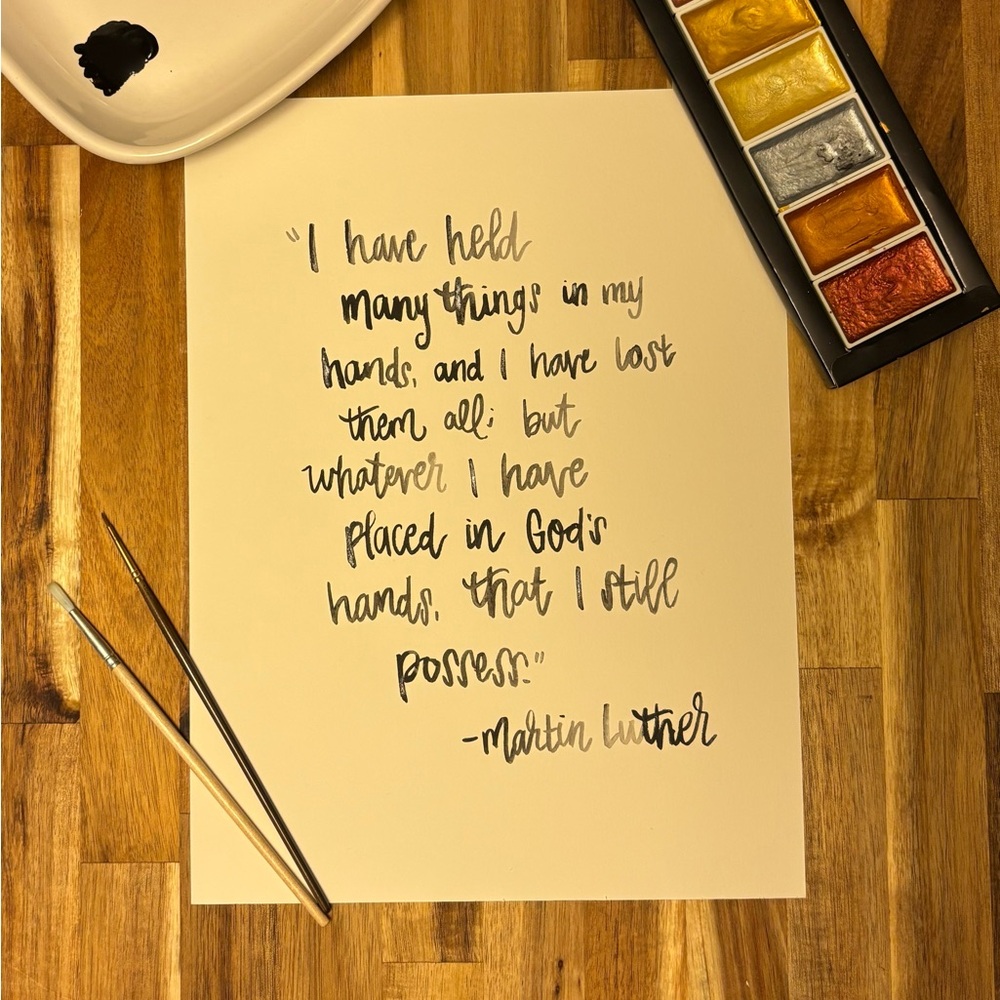 "I have held
many things in my
hands, and I have lost
them all; but
whatever I have
placed in God's
hands, that I still
possess."
-Martin Luther